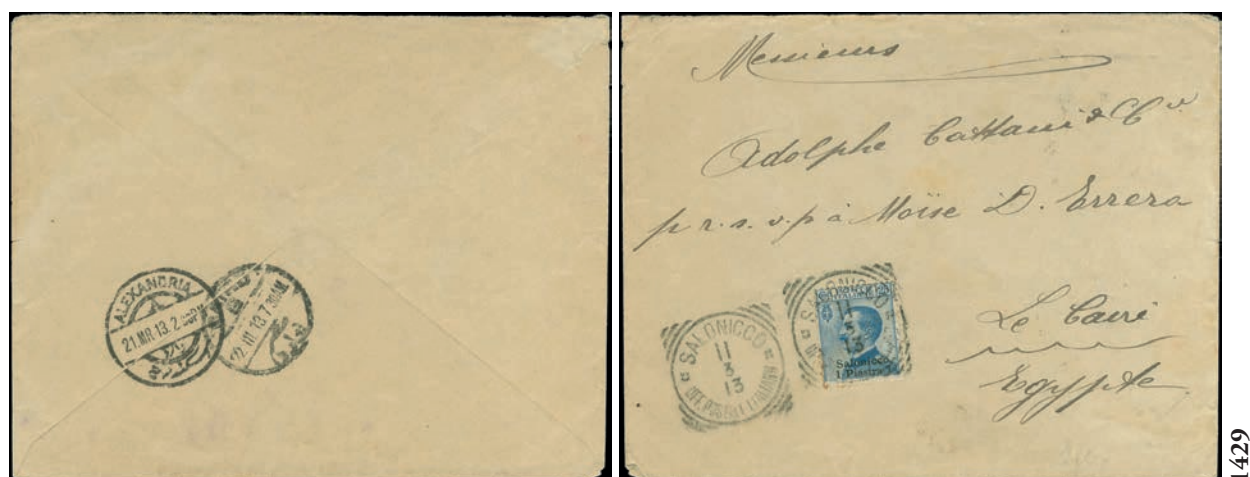 ALEXANDRIA
21.MR.13.2
22.III.13.7 30AM
Messieurs
Adolphe Cattaui & Cie
p r. s. v. p à Moïse D. Errera
Le Caire
Egypte
SALONICCO
11
3
13
UFF. POSTALI ITALIANI
SALONICCO
11
3
13
Salonicco
1 Piastra
1429